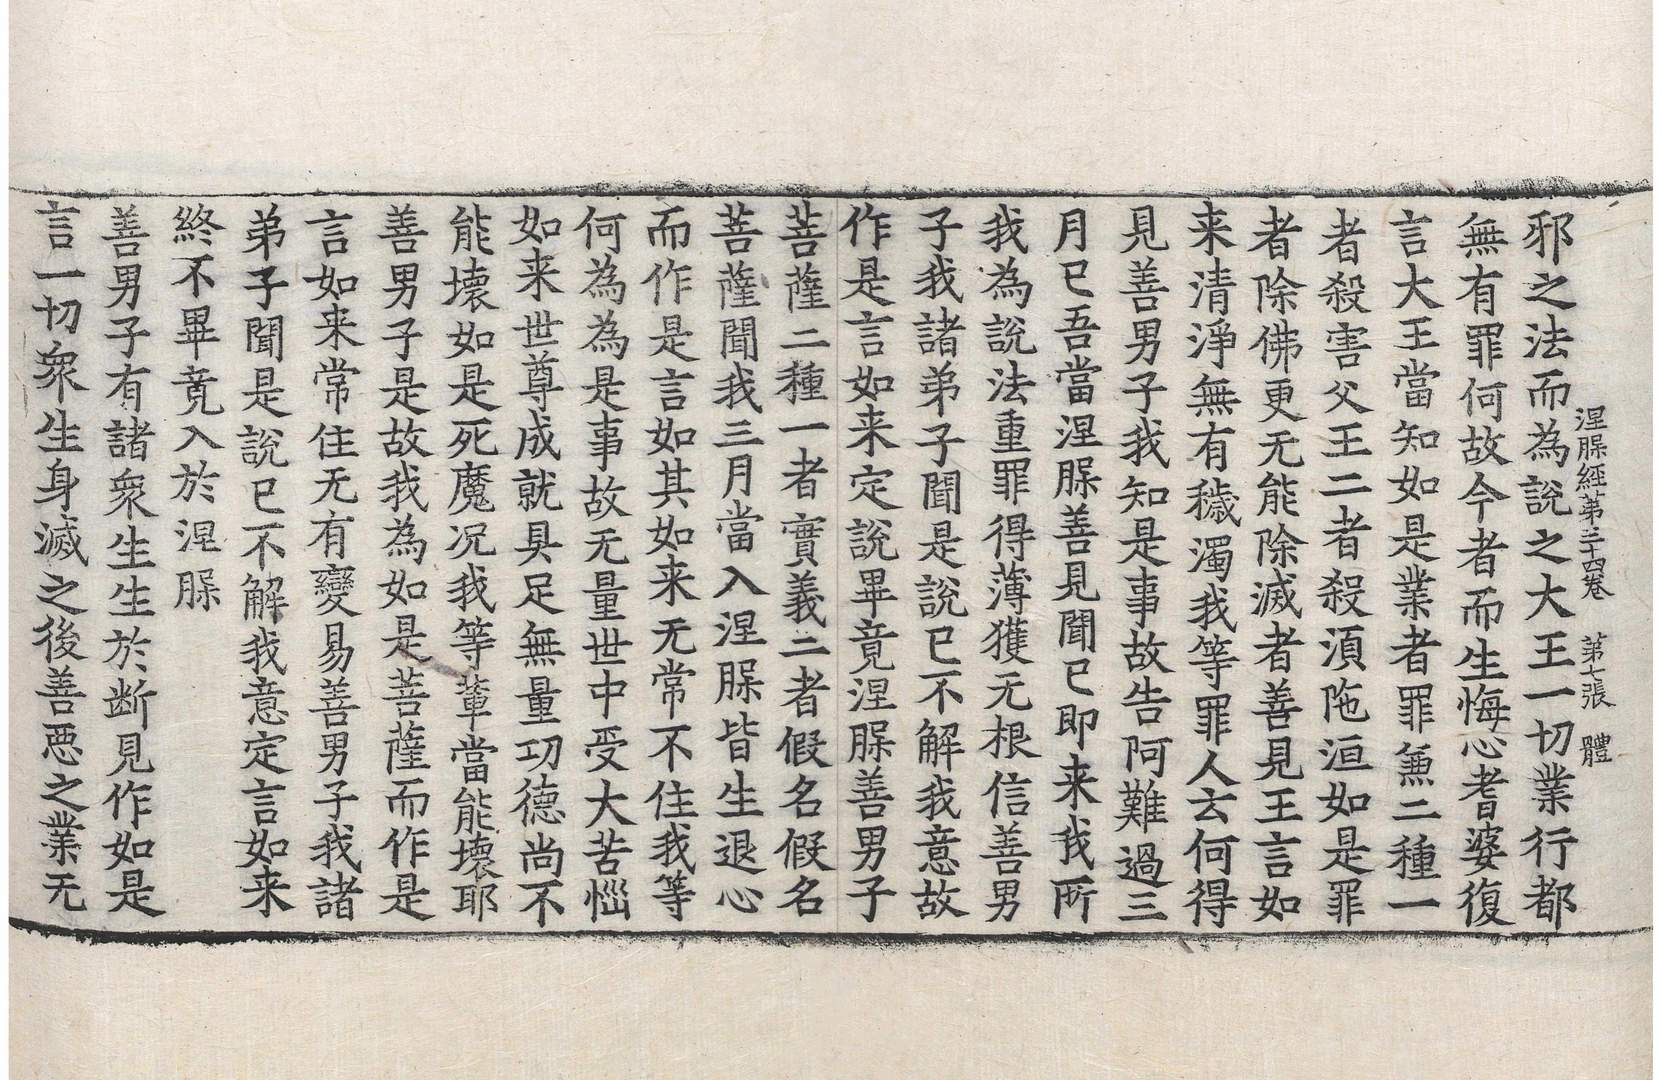 涅槃經第三十四卷 第七張 體
邪之法而為說之大王一切業行都
無有罪何故今者而生悔心耆婆復
言大王當知如是業者罪兼二種一
者殺害父王二者殺湏陁洹如是罪
者除佛更无能除滅者善見王言如
来清淨無有穢濁我等罪人云何得
見善男子我知是事故告阿難過三
月已吾當涅槃善見聞已即来我所
我為說法重罪得薄獲无根信善男
子我諸弟子聞是說已不解我意故
作是言如来定說畢竟涅槃善男子
菩薩二種一者實義二者假名假名
菩薩聞我三月當入涅槃皆生退心
而作是言如其如来无常不住我等
何為為是事故无量世中受大苦惱
如来世尊成就具足無量功德尚不
能壞如是死魔況我等輩當能壞耶
善男子是故我為如是菩薩而作是
言如来常住无有變易善男子我諸
弟子聞是說已不解我意定言如来
終不畢竟入於涅槃
善男子有諸衆生生於断見作如是
言一切衆生身滅之後善惡之業无